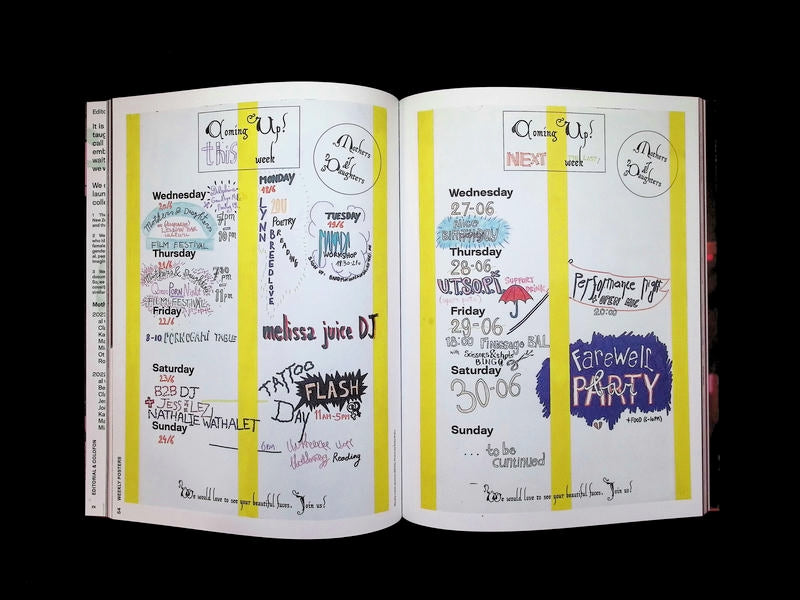 Coming Up!
this week
Mothers & Daughters
MONDAY
18/6
LYNN BREEDLOVE
20U
POETRY READING
TUESDAY
19/6
WORKSHOP
Wednesday
20/6
Mothers & Daughters
FILM FESTIVAL
5pm
10pm
Thursday
21/6
Mothers & Daughters
PORN
FILM FESTIVAL
7:30 pm
11pm
Friday
22/6
8-10 PORKOGAMI TABLE
melissa juice DJ
Saturday
23/6
B2B DJ
+ JESS iLEZ
NATHALIE WATHALET
TATTOO
FLASH
DAY
11AM-5PM
Sunday
24/6
Reading
We would love to see your beautiful faces. Join us!
Coming Up!
NEXT week
Mothers & Daughters
Wednesday
27-06
BIRTHDAY
Thursday
28-06
U.T.S.O.P.I
SUPPORT
DRINK
Performance Night
& OPEN MIC
20:00
Friday
29-06
18:00 Finissage BAL
BINGO
Saturday
30-06
Farewell
PARTY
+ FOOD
Sunday
... to be
continued
We would love to see your beautiful faces. Join us!
EDITORIAL & COLOFON
2
WEEKLY POSTERS
54